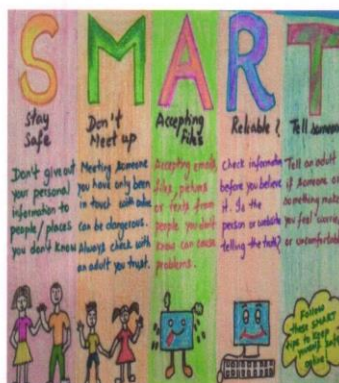 SMART
Stay
Safe
Don't give out
your personal
information to
people/places
you don't know
Don't
Meet up
Meeting someone
you have only been
in touch with online
can be dangerous.
Always check with
an adult you trust.
Accepting
Files
Accepting emails,
files, pictures
or texts from
people you don't
know can cause
problems.
Reliable?
Check information
before you believe
it. Is the
person or website
telling the truth?
Tell someone
Tell an adult
if someone or
something makes
you feel worried
or uncomfortable
Follow
these SMART
tips to keep
yourself safe
online!